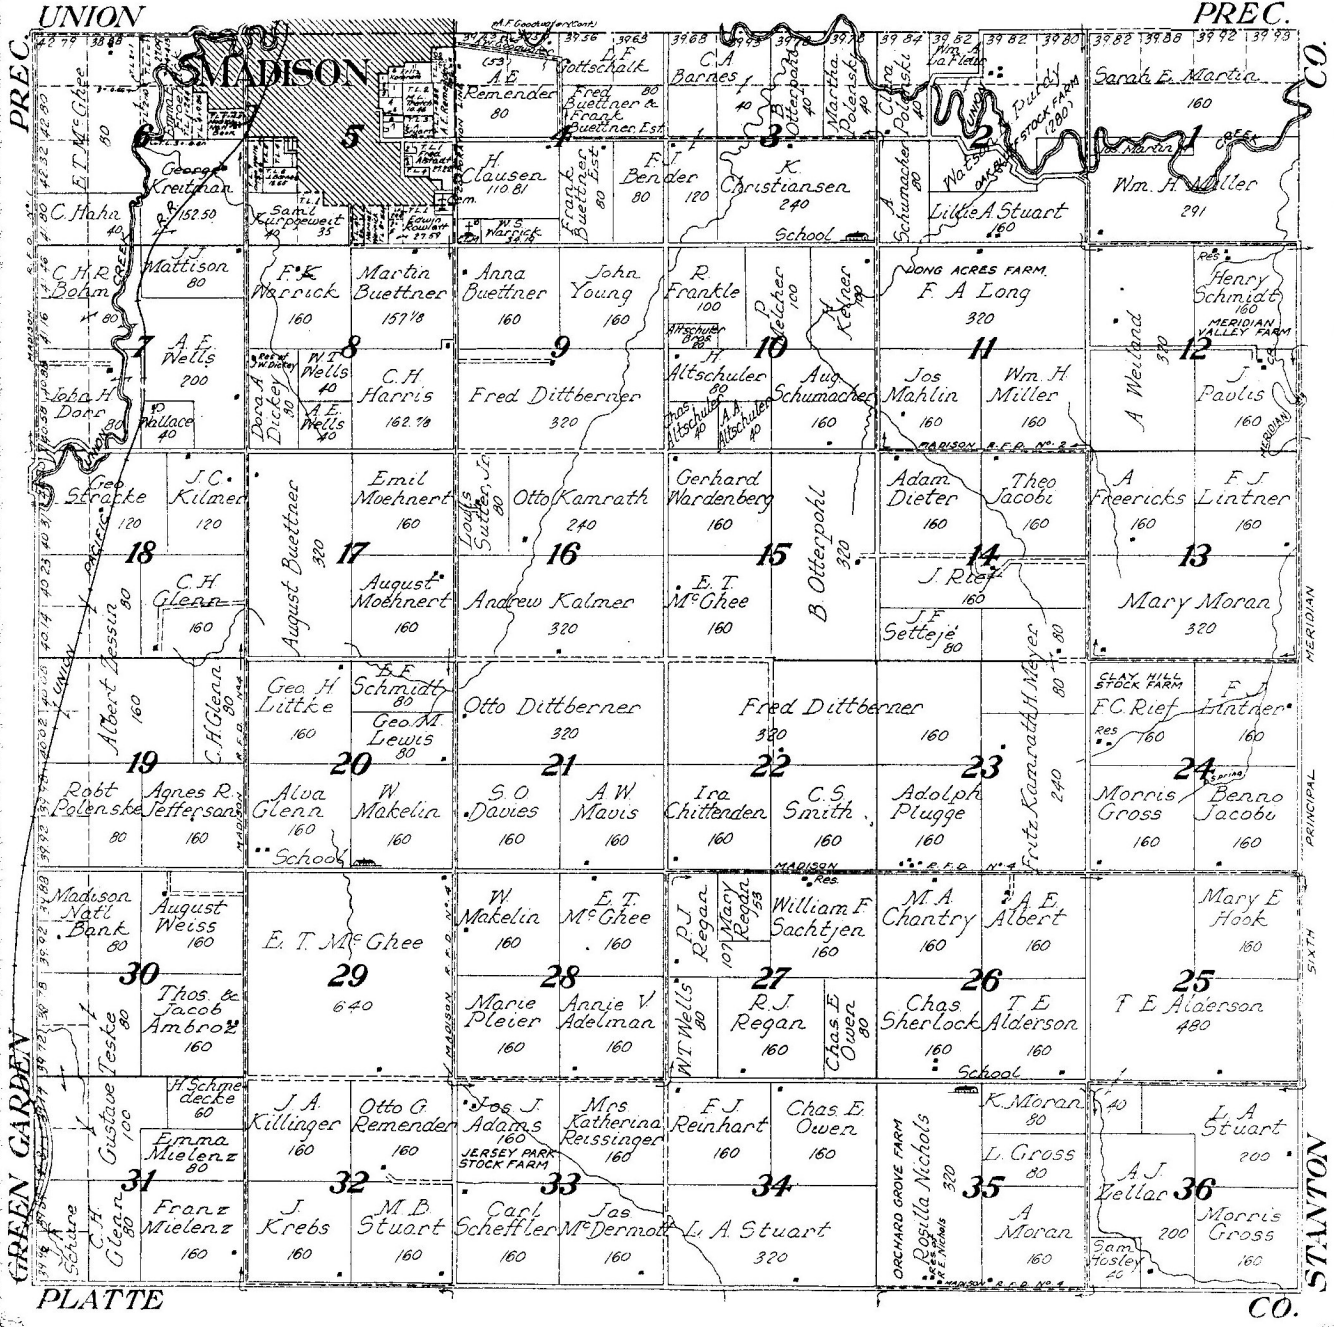 UNION
PREC.
PREC.
CO.
MADISON
E T McGhee
80
6
George
Kreitman
152.50
R.R.
C. Hahn
40
5
Saml
Kurpgeweit
40
35
Edwin
Rowlett
27.59
Cem.
A E
Remender
80
E F
Gottschalk
80
Fred
Buettner &
Frank
Buettner Est
4
H.
Clausen
110 81
W.S.
Warrick
Frank
Buettner Est
80
F. J
Bender
80
120
C A
Barnes
40
B
Otterpohl
40
Martha
Polenski
40
3
K.
Christiansen
240
School
Clara
Polenski
40
Wm. A
LaFleur
Purdy
OAK STOCK FARM
(280)
2
Watson
UNION
A Schumacher
80
Lillie A. Stuart
160
Sarah E. Martin
160
1
Jos. Martin
CREEK
Wm. H Miller
291
C. H. R.
Bohm
80
CREEK
J. J.
Mattison
80
7
A. E.
Wells
200
John H
Dorr
80
Wallace
40
UNION
F. K
Warrick
160
Martin
Buettner
157 78
8
Res of
W. Dickey
Dora A
Dickey
80
W T
Wells
40
A. E.
Wells
40
C. H.
Harris
162.78
Anna
Buettner
160
John
Young
160
9
Fred Dittberner
320
R.
Frankle
100
P
Melcher
100
H
Kelner
100
Altschuler
Bros.
20
10
H.
Altschuler
80
Chas.
Altschuler
40
A A.
Altschuler
40
Aug.
Schumacher
160
LONG ACRES FARM.
F. A Long
320
11
Jos
Mahlin
160
Wm. H.
Miller
160
MADISON R. F. D. No. 2
A Weiland
320
Res
Henry
Schmidt
160
MERIDIAN
VALLEY FARM
12
J
Pavlis
160
MERIDIAN
CR.
Geo
Stracke
120
J. C.
Kilmer
120
18
PACIFIC
C. H
Glenn
160
Albert Zessin
80
160
UNION
August Buettner
320
Emil
Moehnert
160
17
August
Moehnert
160
Louis
Sutter, Jr.
80
Otto Kamrath
240
16
Andrew Kalmer
320
Gerhard
Wardenberg
160
15
E. T.
McGhee
160
B Otterpohl
320
Adam
Dieter
160
Theo
Jacobi
160
14
J. Rief
160
J. F
Setteje
80
A
Freericks
160
F. J
Lintner
160
13
Mary Moran
320
MERIDIAN
C. H. Glenn
80
R. F. D. No. 4
MADISON
19
Robt
Polenske
80
Agnes R.
Jefferson
160
Geo. H
Littke
160
E. F
Schmidt
80
Geo. M.
Lewis
80
20
Alva
Glenn
160
W
Makelin
160
School
Otto Dittberner
320
21
S. O
Davies
160
A. W.
Mavis
160
Fred Dittberner
320
160
22
Ira
Chittenden
160
C. S.
Smith
160
23
Adolph
Plugge
160
Fritz Kamrath
240
H Meyer
80
80
CLAY HILL
STOCK FARM
F. C. Rief
Res
160
F. J
Lintner
160
24
Spring
Morris
Gross
160
Benno
Jacobi
160
PRINCIPAL
MADISON R. F. D. No. 4
Madison
Natl
Bank
80
August
Weiss
160
30
Thos. &
Jacob
Ambroz
160
Gustave Teske
80
100
E. T. McGhee
29
640
MADISON R. F. D. No. 4
W.
Makelin
160
E. T.
McGhee
160
28
Marie
Pleier
160
Annie V.
Adelman
160
P. J
Regan
107
Mary
Regan
53
Res.
William F
Sachtjen
160
27
W. T. Wells
80
R. J
Regan
160
Chas. E
Owen
80
M. A.
Chantry
160
A. E.
Albert
160
26
Chas.
Sherlock
160
T. E
Alderson
160
School
Mary E
Hook
160
25
T E Alderson
480
SIXTH
GREEN GARDEN
H. Schme
decke
60
Emma
Mielenz
80
31
C. H.
Glenn
80
Franz
Mielenz
160
J. A.
Killinger
160
Otto G
Remender
160
32
J.
Krebs
160
M. B.
Stuart
160
Jos. J.
Adams
160
JERSEY PARK
STOCK FARM
Mrs.
Katherina
Reissinger
160
33
Carl
Scheffler
160
Jas
McDermott
160
F. J.
Reinhart
160
Chas. E.
Owen
160
34
L. A Stuart
320
ORCHARD GROVE FARM
Rosilla Nichols
320
Res. of
R. E. Nichols
K. Moran
80
L. Gross
80
35
A
Moran
160
MADISON R. F. D. No. 4
40
L. A
Stuart
200
A. J.
Zellar
200
36
Sam
Hosley
40
Morris
Gross
160
STANTON
PLATTE
CO.